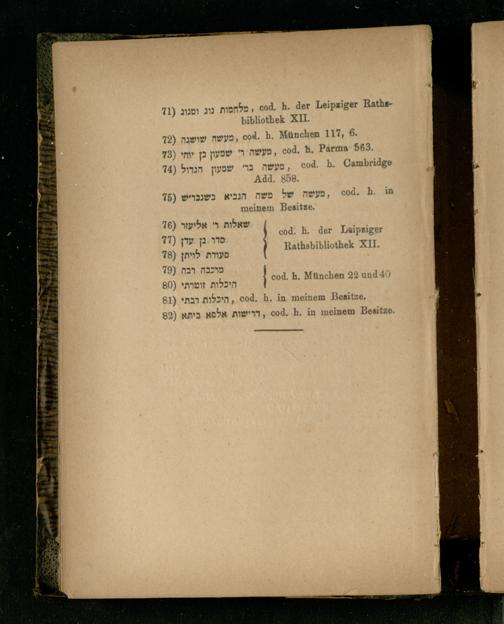 71) מלחמות גוג ומגוג, cod. h. der Leipziger Raths-
bibliothek XII.
72) מעשה שושנה, cod. h. München 117, 6.
73) מעשה ר' שמעון בן יוחי, cod. h. Parma 563.
74) מעשה בר' שמעון הגדול, cod. h. Cambridge
Add. 858.
75) מעשה של משה הנביא כשנבריש, cod. h. in
meinem Besitze.
76) שאלות ר' אליעזר
77) סדר גן עדן
78) סעודת לויתן
cod. h. der Leipziger
Rathsbibliothek XII.
79) מרכבה רבה
80) היכלות זוטרתי
cod. h. München 22 und 40
81) היכלות רבתי, cod. h. in meinem Besitze.
82) דרישות אלפא ביתא, cod. h. in meinem Besitze.